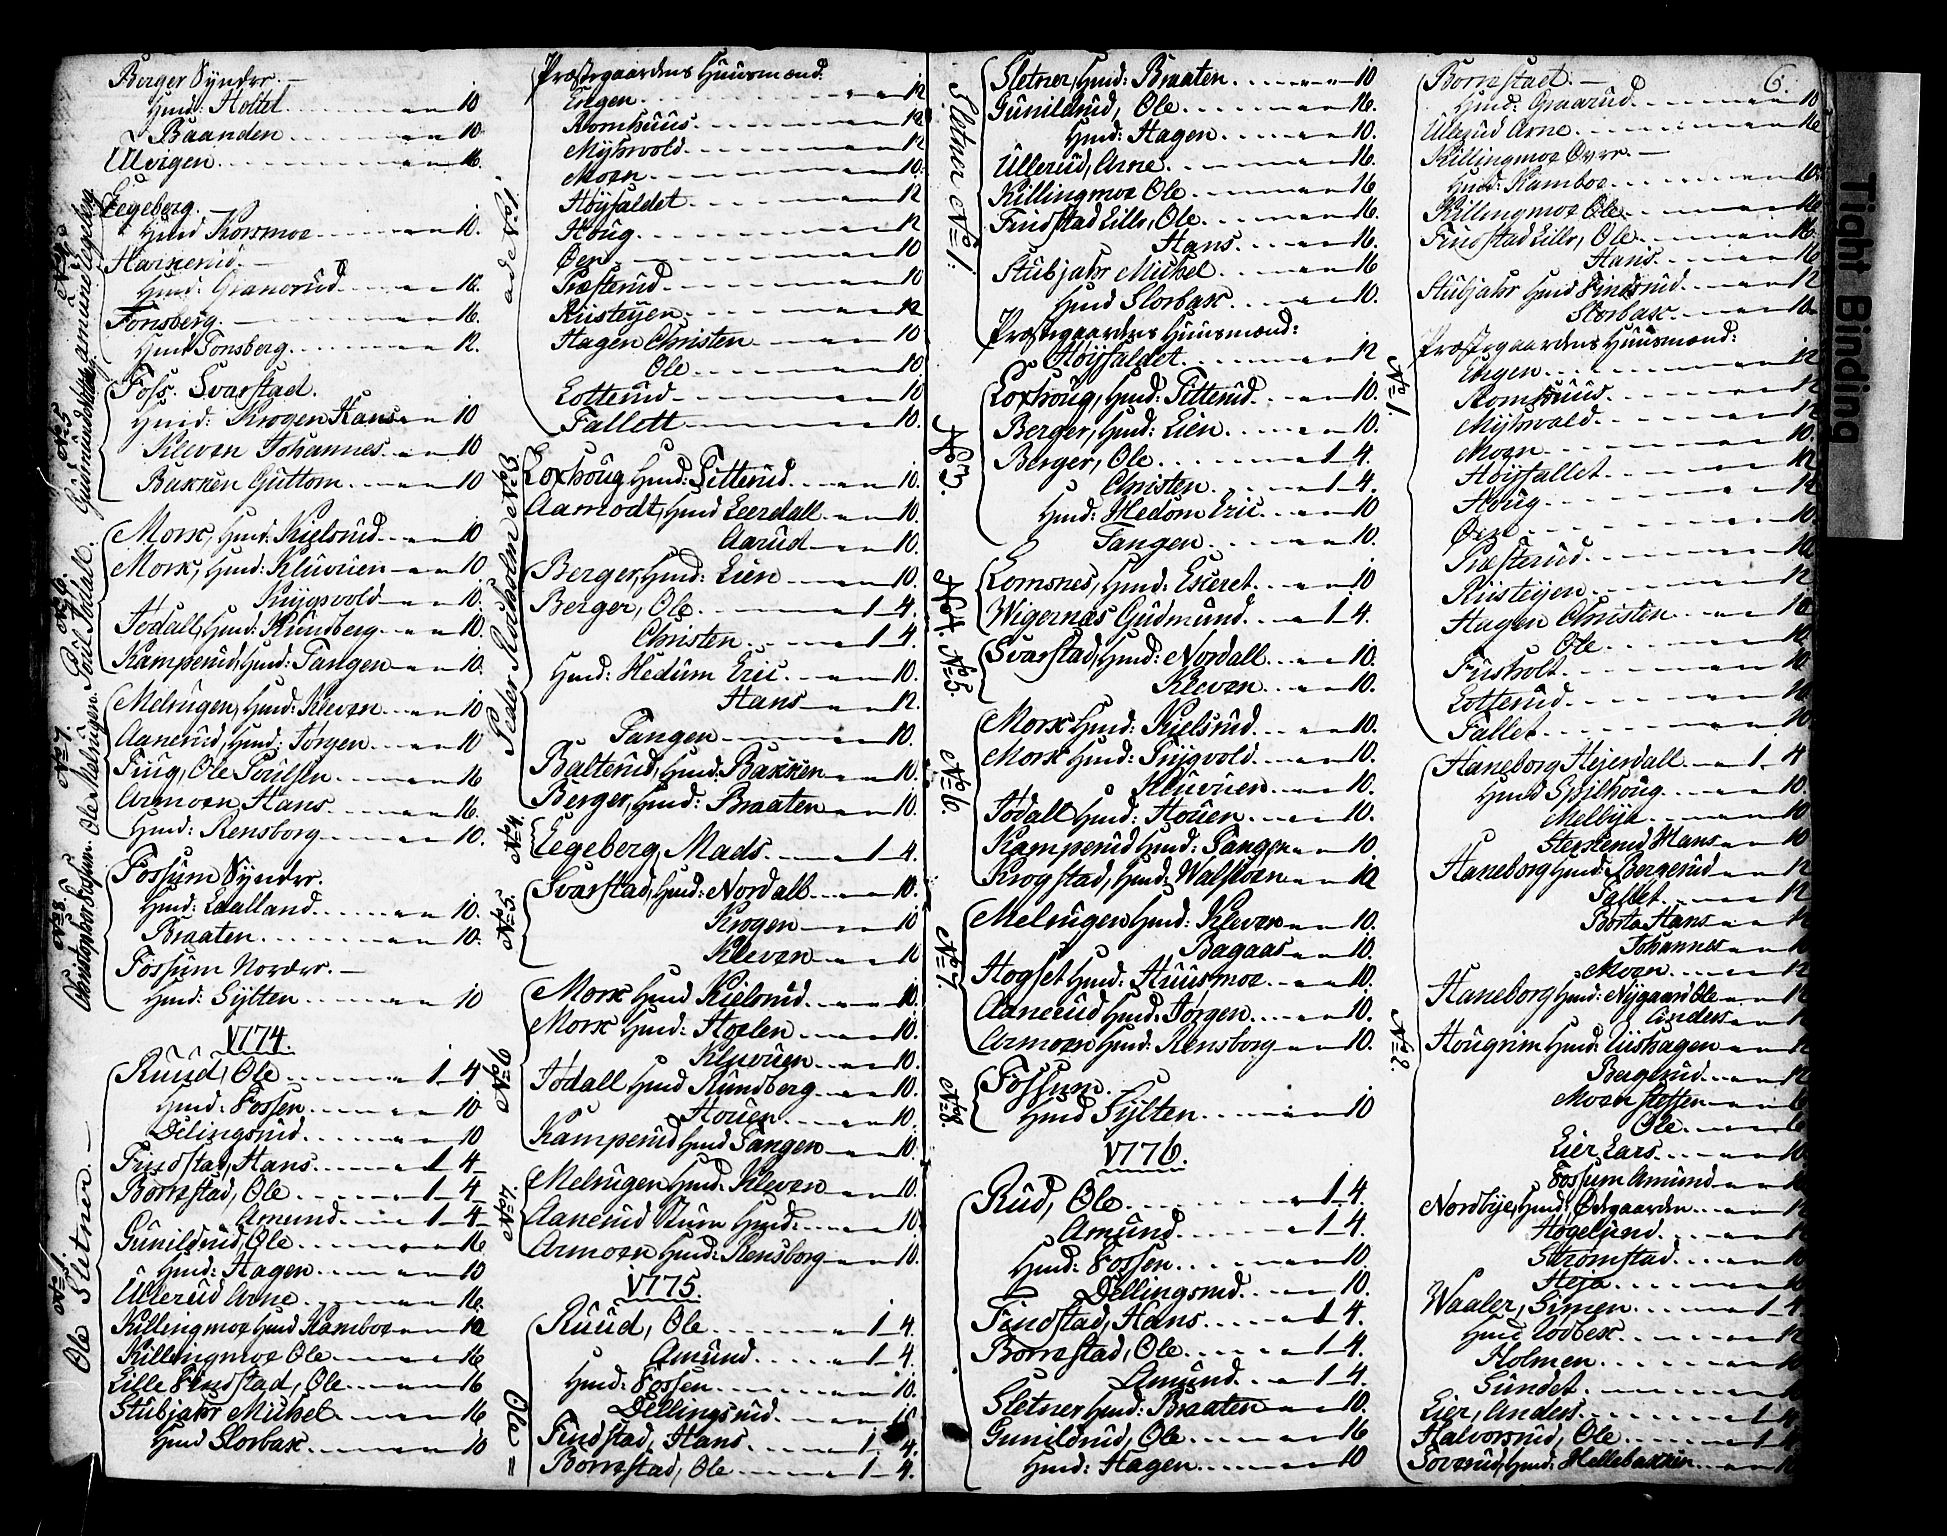 Berger Syndre. —
Hund: Holtet — 10
Baanden — 10
Ulvergen — 16.
Eegeberg. —
Hund Korsmoe — 10.
Harnerud. —
Hund: Granerud — 16.
Tonsberg. — 16.
Hund Tonsberg. — 12.
Foss. Svarstad.
Hund: Krogen Hans — 10
Kleven Johannes — 10
Bakken Guttom — 10
Mork, Hund: Kielsrud — 10
Mork, Hund: Kluvuen — 10
Trygsvold — 10.
Todall, Hund: Rundberg — 10.
Kamperud, Hund: Tangen — 10.
Melrugen, Hund: Kleven — 10
Aanerud, Hund: Jörgen — 10
Tiug, Ole Poulsen — 16
Armoen Hans — 16.
Hund: Rensborg — 10.
Fossum Syndre.
Hund: Laalland — 10.
Braaten — 10.
Fossum Nordre. —
Hund: Sylten — 10
1774.
Ruud, Ole — 1_4
Hund: Fossen — 10
Delingsrud — 10
Findstad, Hans — 1_4
Bornestad, Ole — 1_4
Amund — 1_4
Gunildrud, Ole — 16
Hund: Hagen — 10
Ullerud Arne — 16.
Killingmoe Hund Kamboe — 10
Killingmoe Ole — 16
Lille Findstad, Ole — 16
Stubjahr Mickel — 16
Hund Slorbak — 10
No 5
No 6.
No 7.
No 8.
No 1.
Ole Sletner. —
Præstegaardens Huusmænd.
Engen — 12
Romhuus — 12
Myhrvold — 12
Moen — 10
Höyfaldet — 12
Houg — 12
Öen — 10
Præsterud — 10
Riisteyen — 12
Hagen Christen — 10
Ole — 10
Lotterud — 10
Fallett — 10.
Loxhoug Hund: Titterud — 10.
Aamodt, Hund Leerdall — 10.
Aarud — 10.
Berger, Hund: Lien — 10.
Berger, Ole — 1_4.
Christen — 1_4
Hund: Hedum Eric — 10.
Hans — 12.
Tangen — 10.
Balterud, Hund: Bakken — 10.
Berger, Hund: Braaten — 10.
Eegeberg, Mads — 1_4.
Svarstad, Hund: Nordall — 10.
Krogen — 10
Kleven — 10
Mork Hund Kielsrud — 10.
Mork Hund: Hoelen — 10.
Kluvuen — 10.
Todall Hund Rundberg — 10.
Houen — 10.
Kamperud Hund Tangen — 10.
Melrugen Hund: Kleven — 10.
Aanerud Stuen Hund: — 10
Armoen Hund: Rensborg — 10.
1775.
Ruud, Ole — 1_4.
Amund — 1_4.
Hund: Fossen — 10.
Dellingsrud — 10
Findstad, Hans — 1_4.
Bornestad, Ole — 1_4.
No 1.
Peder Roeholm No 3
No 4.
No 5.
No 6
No 7.
Ole =
Sletner, Hund: Braaten — 10
Gunildrud, Ole — 16.
Hund: Hagen — 10.
Ullerud, Arne — 16.
Killingmoe Ole — 16
Findstad Lille, Ole — 16.
Hans — 16.
Stubjahr Mickel — 16
Hund Slorbak — 10.
Præstegaardens Huusmænd:
Höyfaldet — 12
Loxhoug, Hund: Titterud — 10.
Berger, Hund: Lien — 10.
Berger, Ole — 1_4.
Christen — 1_4.
Hund: Hedom Eric — 10
Tangen — 10.
Lomsnes, Hund: Eskeret — 10
Wigernæs Gudmund — 1_4.
Svarstad, Hund: Nordall — 10.
Kleven — 10.
Mork Hund: Kielsrud — 10.
Mork Hund: Trygvold — 10.
Kluvuen — 10.
Todall Hund: Houen — 10.
Kamperud Hund: Tangen — 10
Krogstad, Hund: Walstoen — 10
Melrugen Hund: Kleven — 10.
Bagaas — 10.
Hogset Hund: Huusmoe — 10.
Aanerud Hund: Jörgen — 10.
Armoen Hund: Rensborg — 10.
Fossum.
Hund Sylten — 10
1776.
Rud, Ole — 1_4.
Amund — 1_4.
Hund: Fossen — 10.
Dellingsrud — 10.
Findstad, Hans — 1_4.
Bornestad, Ole — 1_4.
Amund — 1_4.
Sletner Hund: Braaten — 10.
Gunildrud, Ole — 16
Hund: Hagen — 10
Sletner No 1.
No 3.
No 4.
No 5.
No 6.
No 7
No 8.
6.
Bornestad. —
Hund: Graarud — 10
Ullerud Arne — 16
Killingmoe Övre. —
Hund: Kamboe — 10
Killingmoe Ole — 16
Findstad Lille, Ole — 16
Hans — 16
Stubjahr Hund Findsrud — 12
Slorbak — 10
Præstegaardens Huusmænd:
Engen — 12
Romhuus — 12
Myhrvold — 12
Moen — 10.
Höyfallet — 12
Houg — 12
Öen — 10
Præsterud — 10
Riisteyen — 12
Hagen Christen — 10
Ole — 10
Fusholt — 10
Lotterud — 10
Fallet — 10
Haneborg Hejerdall — 1_4
Hund Spilhoug — 10.
Melbye — 10
Stersterud Hans — 10
Haneborg Hund: Bergerud — 12
Fallet — 12
Borta Hans
Johannes
Moen — 12
Haneborg Hund: Nygaard Ole
Anders
Hougrim Hund: Riishagen
Bergerud
Moen Steffen
Ole
Eier Lars
Fossum Amund
Nordbye, Hund: Ödegaarden
Högelund
Strömstad
Heja
Waaler, Simen — 1_4
Hund Lodbek
Holmen
Sundet
Eier, Anders
Halvorsrud, Ole
Soverud, Hund: Hellebakken
No 1.
No 2.
Tight Binding